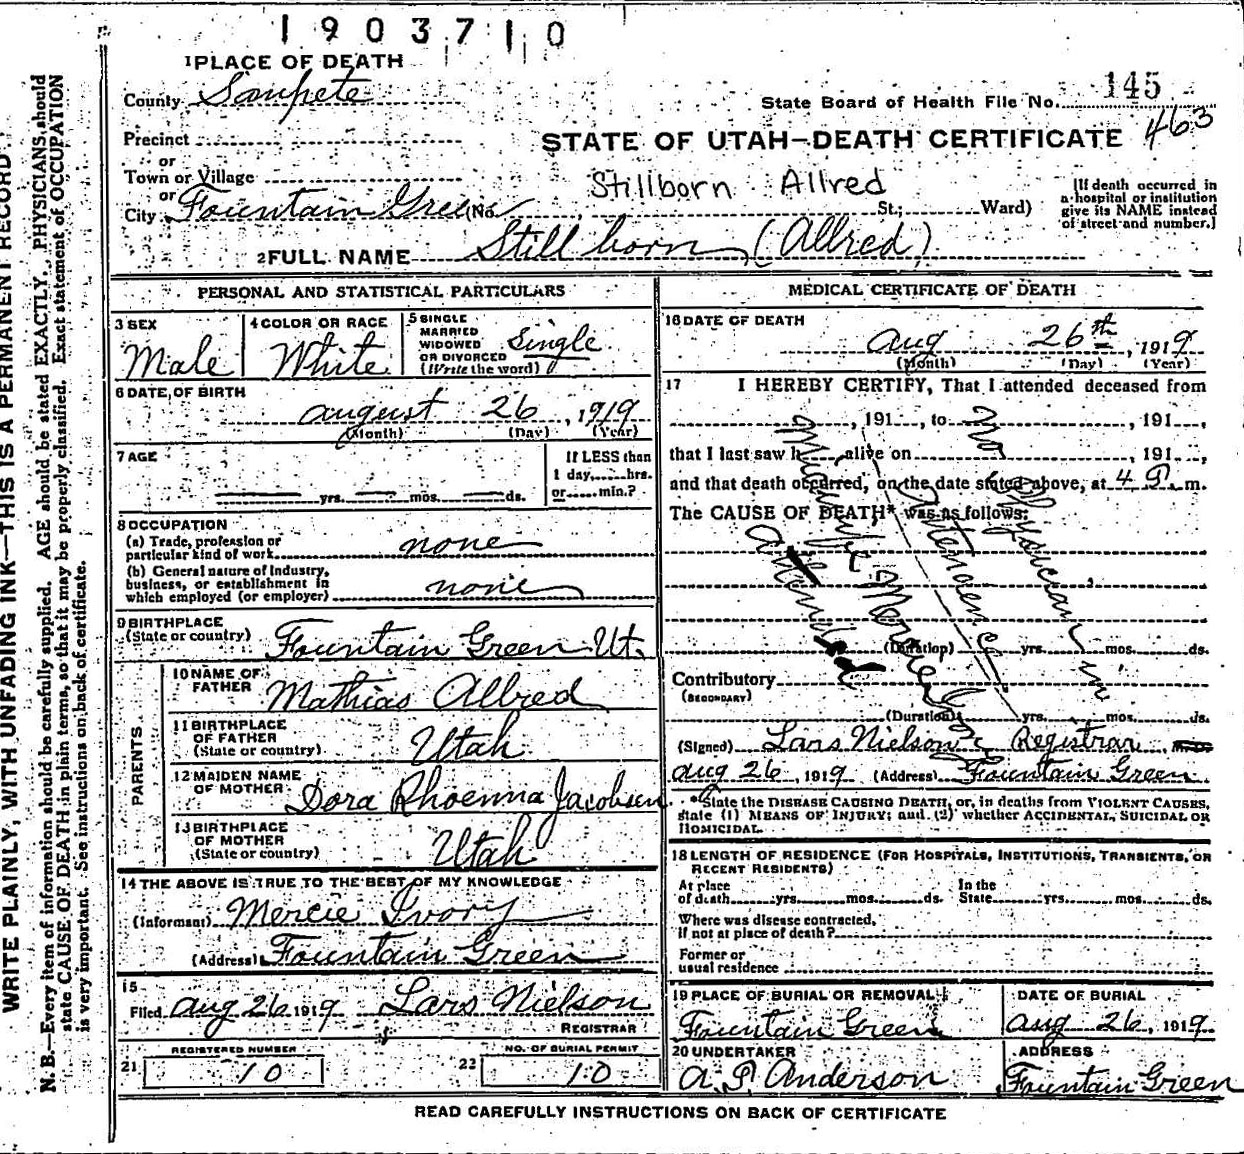 1903710
1 PLACE OF DEATH
County Sanpete
State Board of Health File No. 145
463
Precinct
STATE OF UTAH—DEATH CERTIFICATE
or
Town or Village
Stillborn Allred
or
City Fountain Green (No. St.; Ward)
[If death occurred in a hospital or institution give its NAME instead of street and number.]
2 FULL NAME Still born (Allred)
PERSONAL AND STATISTICAL PARTICULARS
3 SEX
Male
4 COLOR OR RACE
White
5 SINGLE
MARRIED
WIDOWED
OR DIVORCED
(Write the word)
Single
6 DATE OF BIRTH
august 26, 1919
(Month) (Day) (Year)
7 AGE
yrs. mos. ds.
If LESS than
1 day, hrs.
or min.?
8 OCCUPATION
(a) Trade, profession or
particular kind of work none
(b) General nature of Industry,
business, or establishment in
which employed (or employer) none
9 BIRTHPLACE
(State or country) Fountain Green Ut.
PARENTS
10 NAME OF
FATHER Mathias Allred
11 BIRTHPLACE
OF FATHER
(State or country) Utah
12 MAIDEN NAME
OF MOTHER Dora Rhoenna Jacobsen
13 BIRTHPLACE
OF MOTHER
(State or country) Utah
14 THE ABOVE IS TRUE TO THE BEST OF MY KNOWLEDGE
(Informant) Mercie Ivory
(Address) Fountain Green
15
Filed Aug 26 1919 Lars Nielson
REGISTRAR
REGISTERED NUMBER
21 10
NO. OF BURIAL PERMIT
22 10
MEDICAL CERTIFICATE OF DEATH
16 DATE OF DEATH
Aug 26th, 1919
(Month) (Day) (Year)
17 I HEREBY CERTIFY, That I attended deceased from
, 191 , to , 191 ,
that I last saw h alive on , 191 ,
and that death occurred, on the date stated above, at 4 P. m.
The CAUSE OF DEATH* was as follows:
No Physician in
Attendence
Midwife Mercie
Attended
(Duration) yrs. mos. ds.
Contributory
(SECONDARY)
(Duration) yrs. mos. ds.
(Signed) Lars Nielson Registrar
Aug 26, 1919 (Address) Fountain Green
*State the DISEASE CAUSING DEATH, or, in deaths from VIOLENT CAUSES,
state (1) MEANS OF INJURY; and (2) whether ACCIDENTAL, SUICIDAL OR
HOMICIDAL.
18 LENGTH OF RESIDENCE (FOR HOSPITALS, INSTITUTIONS, TRANSIENTS, OR
RECENT RESIDENTS)
At place
of death yrs. mos. ds.
In the
State yrs. mos. ds.
Where was disease contracted,
if not at place of death?
Former or
usual residence
19 PLACE OF BURIAL OR REMOVAL
Fountain Green
DATE OF BURIAL
Aug 26, 1919
20 UNDERTAKER
A. P. Anderson
ADDRESS
Fountain Green
READ CAREFULLY INSTRUCTIONS ON BACK OF CERTIFICATE
WRITE PLAINLY, WITH UNFADING INK—THIS IS A PERMANENT RECORD
N. B.—Every item of information should be carefully supplied. AGE should be stated EXACTLY. PHYSICIANS should
state CAUSE OF DEATH in plain terms, so that it may be properly classified. Exact statement of OCCUPATION
is very important. See instructions on back of certificate.